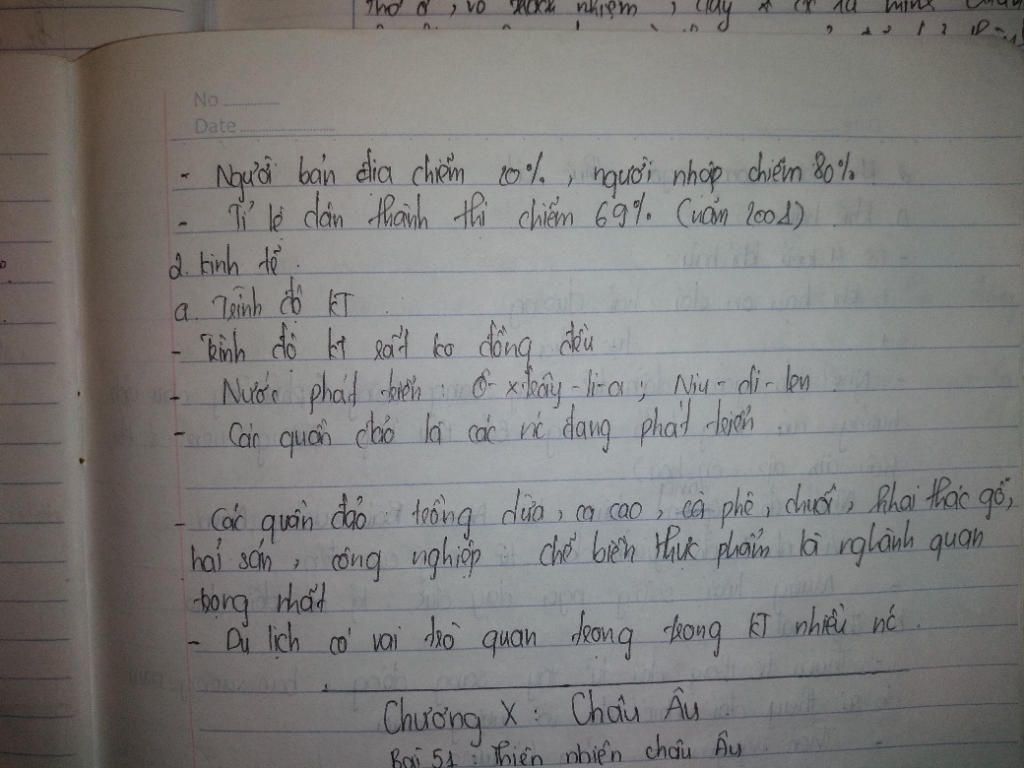 thờ ơ, vô trách nhiệm,
No
Date
- Người bản địa chiếm 20%, người nhập chiếm 80%.
- Tỉ lệ dân thành thị chiếm 69% (năm 2001)
2. Kinh tế.
a. Trình độ KT
- Trình độ KT rất ko đồng đều
- Nước phát triển: Ô-xtrây-li-a; Niu-di-len
- Các quần đảo là các nc đang phát triển
- Các quần đảo: trồng dừa, ca cao, cà phê, chuối, khai thác gỗ,
hải sản, công nghiệp: chế biến thực phẩm là nghành quan
trọng nhất
- Du lịch có vai trò quan trọng trong KT nhiều nc.
Chương X: Châu Âu
Bài 51: Thiên nhiên châu Âu